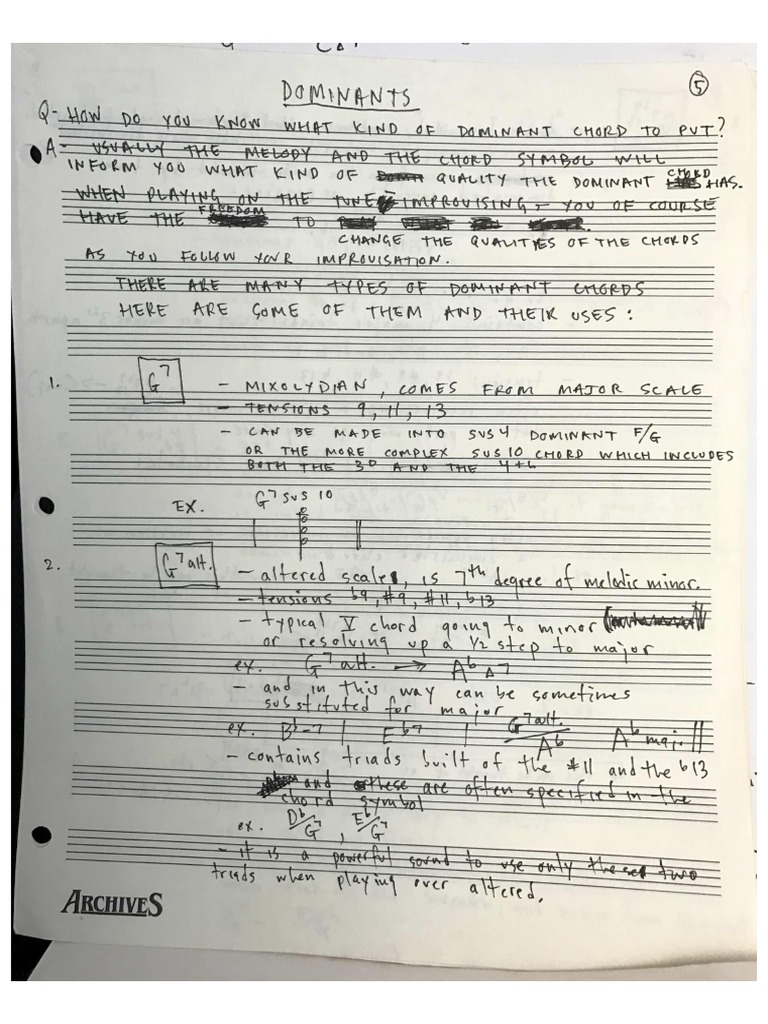 5
DOMINANTS
Q- HOW DO YOU KNOW WHAT KIND OF DOMINANT CHORD TO PUT?
A- USUALLY THE MELODY AND THE CHORD SYMBOL WILL
INFORM YOU WHAT KIND OF QUALITY THE DOMINANT CHORD HAS.
WHEN PLAYING ON THE TUNE IMPROVISING - YOU OF COURSE
HAVE THE FREEDOM TO
CHANGE THE QUALITIES OF THE CHORDS
AS YOU FOLLOW YOUR IMPROVISATION.
THERE ARE MANY TYPES OF DOMINANT CHORDS
HERE ARE SOME OF THEM AND THEIR USES:
1. G7 - MIXOLYDIAN, COMES FROM MAJOR SCALE
- TENSIONS 9, 11, 13
- CAN BE MADE INTO SUS4 DOMINANT F/G
OR THE MORE COMPLEX SUS10 CHORD WHICH INCLUDES
BOTH THE 3D AND THE 4th
EX. G7 SUS 10
2. G7 alt. - altered scale, is 7th degree of melodic minor.
- tensions b9, #9, #11, b13
- typical V chord going to minor
or resolving up a 1/2 step to major
ex. G7 alt. → Ab Δ7
- and in this way can be sometimes
substituted for major
ex. Bb-7 | Eb7 | G7alt./Ab Abmaj. ||
- contains triads built of the #11 and the b13
and these are often specified in the
chord symbol
ex. Db/G7, Eb/G7
- it is a powerful sound to use only these two
triads when playing over altered.
ARCHIVES